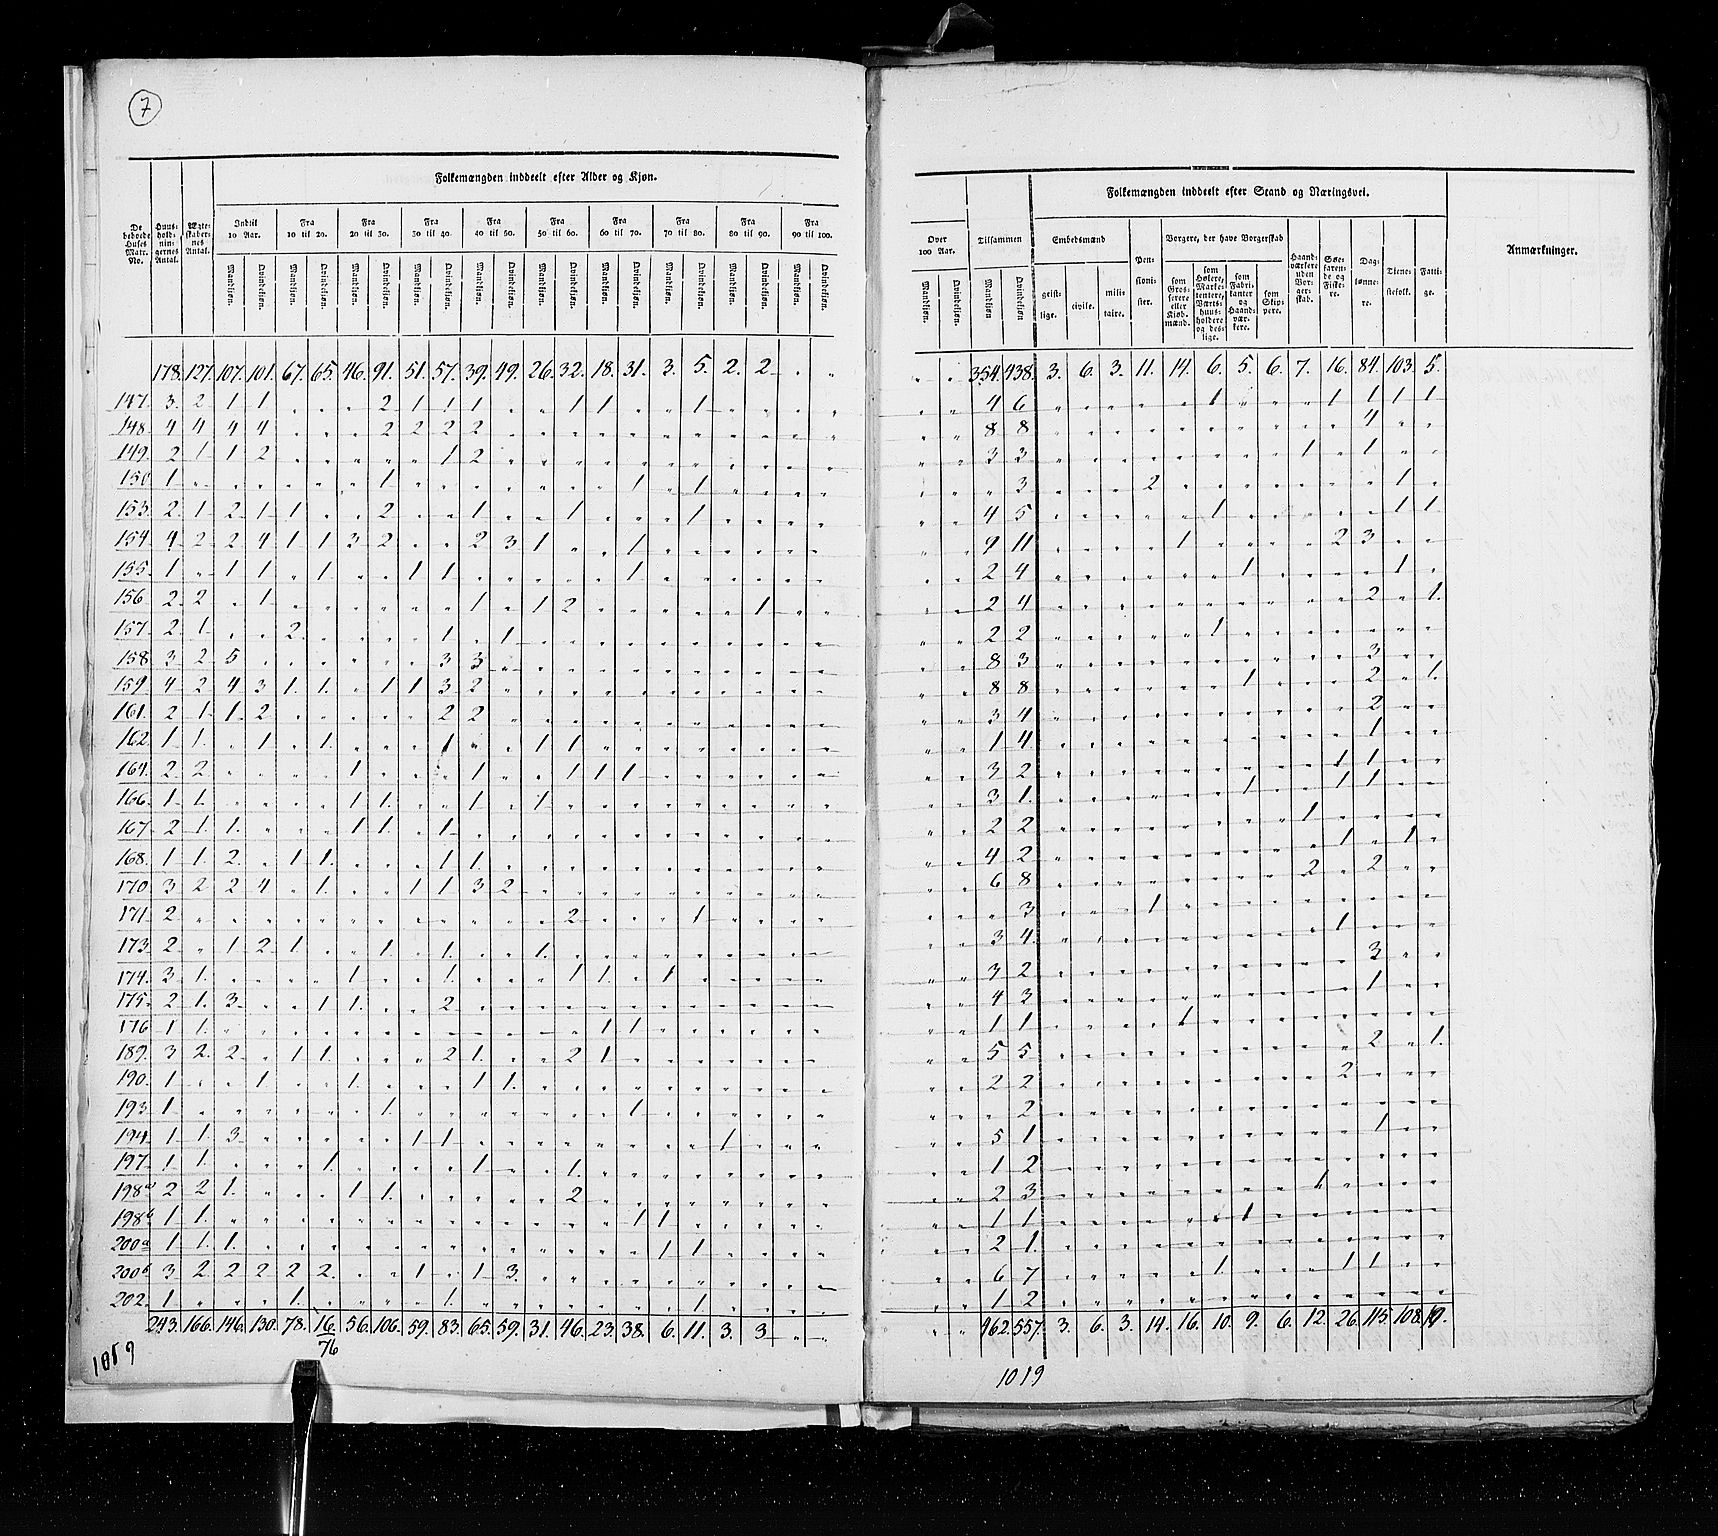 7
Folkemængden inddeelt efter Alder og Kjøn.
De beboede Huses Matr. No. | Huus-hold-nin-gernes Antal. | Ægte-skaber-nes Antal. | Indtil 10 Aar. | Fra 10 til 20. | Fra 20 til 30. | Fra 30 til 40. | Fra 40 til 50. | Fra 50 til 60. | Fra 60 til 70. | Fra 70 til 80. | Fra 80 til 90. | Fra 90 til 100.
Mandkjøn. Qvindekjøn. Mandkjøn. Qvindekjøn. Mandkjøn. Qvindekjøn. Mandkjøn. Qvindekjøn. Mandkjøn. Qvindekjøn. Mandkjøn. Qvindekjøn. Mandkjøn. Qvindekjøn. Mandkjøn. Qvindekjøn. Mandkjøn. Qvindekjøn. Mandkjøn. Qvindekjøn.
178. 127. 107. 101. 67. 65. 46. 91. 51. 57. 39. 49. 26. 32. 18. 31. 3. 5. 2. 2. „ „
147. 3. 2. 1 1 „ „ „ 2 1 1 1 „ „ 1 1 „ „ 1 „ „ „ „
148. 4 4 4 4 „ „ „ 2 2 2 2 „ „ „ „ „ „ „ „ „ „ „
149. 2 1 1 2 „ „ „ „ „ 1 2 „ „ „ „ „ „ „ „ „ „ „
150 1 „ „ „ „ „ „ 1 „ „ „ „ „ „ „ 1 „ 1 „ „ „ „
153. 2. 1 2 1 1 „ „ 2 „ „ 1 „ „ 1 „ „ „ 1 „ „ „ „
154 4 2 2 4 1 1 3 2 „ „ 2 3 1 „ „ 1 „ „ „ „ „ „
155. 1 „ 1 1 „ 1 „ „ 1 1 „ „ „ „ „ 1 „ „ „ „ „ „
156 2. 2 „ 1 „ „ „ „ „ „ 1 „ 1 2 „ „ „ „ „ 1 „ „
157. 2. 1 „ „ 2 „ „ „ „ 1 „ 1 „ „ „ „ „ „ „ „ „ „
158 3 2 5 „ „ „ „ „ „ 3 3 „ „ „ „ „ „ „ „ „ „ „
159 4 2 4 3 1. 1. „ 1 1 3 2 „ „ „ „ „ „ „ „ „ „ „
161. 2 1 1 2 „ „ „ „ „ 2 2 „ „ „ „ „ „ „ „ „ „ „
162. 1 1. „ 1 „ 1. „ „ „ 1 „ „ 1 1 „ „ „ „ „ „ „ „
164. 2 2 „ „ „ „ 1 „ „ „ 1 „ „ 1 1 1 „ „ „ „ „ „
166. 1 1. „ „ „ „ 1 1. „ „ 1 „ 1 „ „ „ „ „ „ „ „ „
167. 2 1. 1. „ „ „ 1 1. „ 1 „ „ „ „ „ „ „ „ „ „ „ „
168. 1 1. 2. „ 1 1. „ „ „ 1 1. „ „ „ „ „ „ „ „ „ „ „
170 3 2 2 4 „ 1. „ „ 1 1 3 2 „ „ „ „ „ „ „ „ „ „
171 2 „ „ „ „ „ „ „ „ „ „ „ „ 2 „ „ „ 1 „ „ „ „
173 2 „ 1 2 1. „ „ 1. „ 1. „ „ 1. „ „ „ „ „ „ „ „ „
174. 3 1. „ „ „ „ 1 „ „ 1. „ „ „ 1 1. „ 1 „ „ „ „ „
175. 2 1. 3 „ „ 1 1. „ „ 2 „ „ „ „ „ „ „ „ „ „ „ „
176 1 1. „ „ „ „ „ „ „ „ „ „ „ „ 1 1 „ „ „ „ „ „
189. 3 2. 2 „ 1 1. „ „ „ 2 1. „ „ 2 1 „ „ „ „ „ „ „
190. 1 „ „ 1 „ „ 1. „ „ „ 1 1. „ „ „ „ „ „ „ „ „ „
193 1 „ „ „ „ „ „ 1. „ „ „ „ „ „ „ 1 „ „ „ „ „ „
194 1 1. 3 „ „ „ „ „ 1 1 „ „ „ „ „ „ „ „ 1 „ „ „
197 1 1. „ „ „ 1. „ „ „ „ 1 „ „ 1. „ „ „ „ „ „ „ „
198a 2 2 1. „ „ „ 1 1. „ „ „ „ „ 2 „ „ „ „ „ „ „ „
198b 1 1. „ „ „ „ „ „ „ „ „ „ „ „ „ 1 1 „ „ „ „ „
200a 1 1. 1. „ „ „ „ „ „ „ „ „ „ „ „ „ 1 1 „ „ „ „
200b 3 2 2 2 2 2. „ „ 1 „ 1 3 „ „ „ „ „ „ „ „ „ „
202. 1 „ „ „ 1. „ „ „ „ 1. „ „ „ „ „ „ „ 1. „ „ „ „
243. 166. 146. 130. 78. 16. 56. 106. 59. 83. 65. 59. 31. 46. 23. 38. 6. 11. 3. 3 „ „
76
1019
Folkemængden inddeelt efter Stand og Næringsvei.
Over 100 Aar. | Tilsammen | Embedsmænd | Pen-sioni-ster. | Borgere, der have Borgerskab | Haand-værkere uden Bor-ger-skab. | Søe-farende og Fiske-re. | Dag-lønne-re. | Tiene-stefolk. | Fatti-ge. | Anmærkninger.
Mandkjøn. Qvindekjøn. Mandkjøn Qvindekjøn geist-lige. civile. mili-taire. som Gros-serere eller Kiøb-mænd. som Høkere, Marke-tentere, Værts-huus-holdere og des-lige. som Fabri-kanter og Haand-vær-kere. som Skip-pere.
„ „ 354. 438. 3. 6. 3. 11. 14. 6. 5. 6. 7. 16. 84. 103. 5.
„ „ 4 6 „ „ „ „ „ 1 „ „ „ 1 1 1 1
„ „ 8 8 „ „ „ „ „ „ „ „ „ „ 4 „ „
„ „ 3 3 „ „ „ „ „ „ „ „ 1 „ 1 „ „
„ „ „ 3 „ „ „ 2 „ „ „ „ „ „ „ 1 „
„ „ 4 5 „ „ „ „ „ 1 „ „ „ „ „ 1 1
„ „ 9 11 „ „ „ „ 1 „ „ „ „ 2 3 „ „
„ „ 2 4 „ „ „ „ „ „ 1 „ „ „ „ 1 „
„ „ 2 4 „ „ „ „ „ „ „ „ „ „ 2 „ 1.
„ „ 2 2 „ „ „ „ „ 1 „ „ „ „ „ „ „
„ „ 8 3 „ „ „ „ „ „ „ „ „ „ 3 „ „
„ „ 8 8 „ „ „ „ „ „ 1 „ „ „ 2 „ 1.
„ „ 3 4 „ „ „ „ „ „ „ „ „ „ 2 „ „
„ „ 1 4 „ „ „ „ „ „ „ „ „ „ 1 „ „
„ „ 3 2 „ „ „ „ „ „ „ „ „ 1 1 „ „
„ „ 3 1. „ „ „ „ „ „ 1 „ „ 1 1 „ „
„ „ 2 2 „ „ „ „ „ „ „ „ 1 „ „ „ „
„ „ 4 2 „ „ „ „ „ „ „ „ „ 1 „ 1 „
„ „ 6 8 „ „ „ „ „ „ „ „ 2 „ 2 „ „
„ „ „ 3 „ „ „ 1 „ „ „ „ „ „ „ „ „
„ „ 3 4. „ „ „ „ „ „ „ „ „ 1 „ „ „
„ „ 3 2 „ „ „ „ „ „ „ „ „ „ 3 „ „
„ „ 4 3 „ „ „ „ „ „ „ „ „ „ 1 „ „
„ „ 1 1 „ „ „ „ 1 „ „ „ „ „ „ „ „
„ „ 5 5 „ „ „ „ „ „ „ „ „ „ 2 „ 1.
„ „ 2 2 „ „ „ „ „ „ „ „ „ 2 „ „ „
„ „ „ 2 „ „ „ „ „ „ „ „ „ „ „ „ „
„ „ 5 1 „ „ „ „ „ „ „ „ „ „ 1 „ „
„ „ 1 2 „ „ „ „ „ „ „ „ „ „ „ „ „
„ „ 2 3 „ „ „ „ „ „ „ „ 1 „ „ „ „
„ „ 1 1 „ „ „ „ „ „ 1 „ „ „ „ „ „
„ „ 2 1. „ „ „ „ „ „ „ „ „ „ „ „ „
„ „ 6 7 „ „ „ „ „ 1. „ „ „ 1 1 „ „
„ „ 1 2 „ „ „ „ „ „ „ „ „ „ „ „ „
„ „ 462. 557. 3. 6. 3. 14. 16. 10. 9. 6. 12. 26. 115. 108.
1019